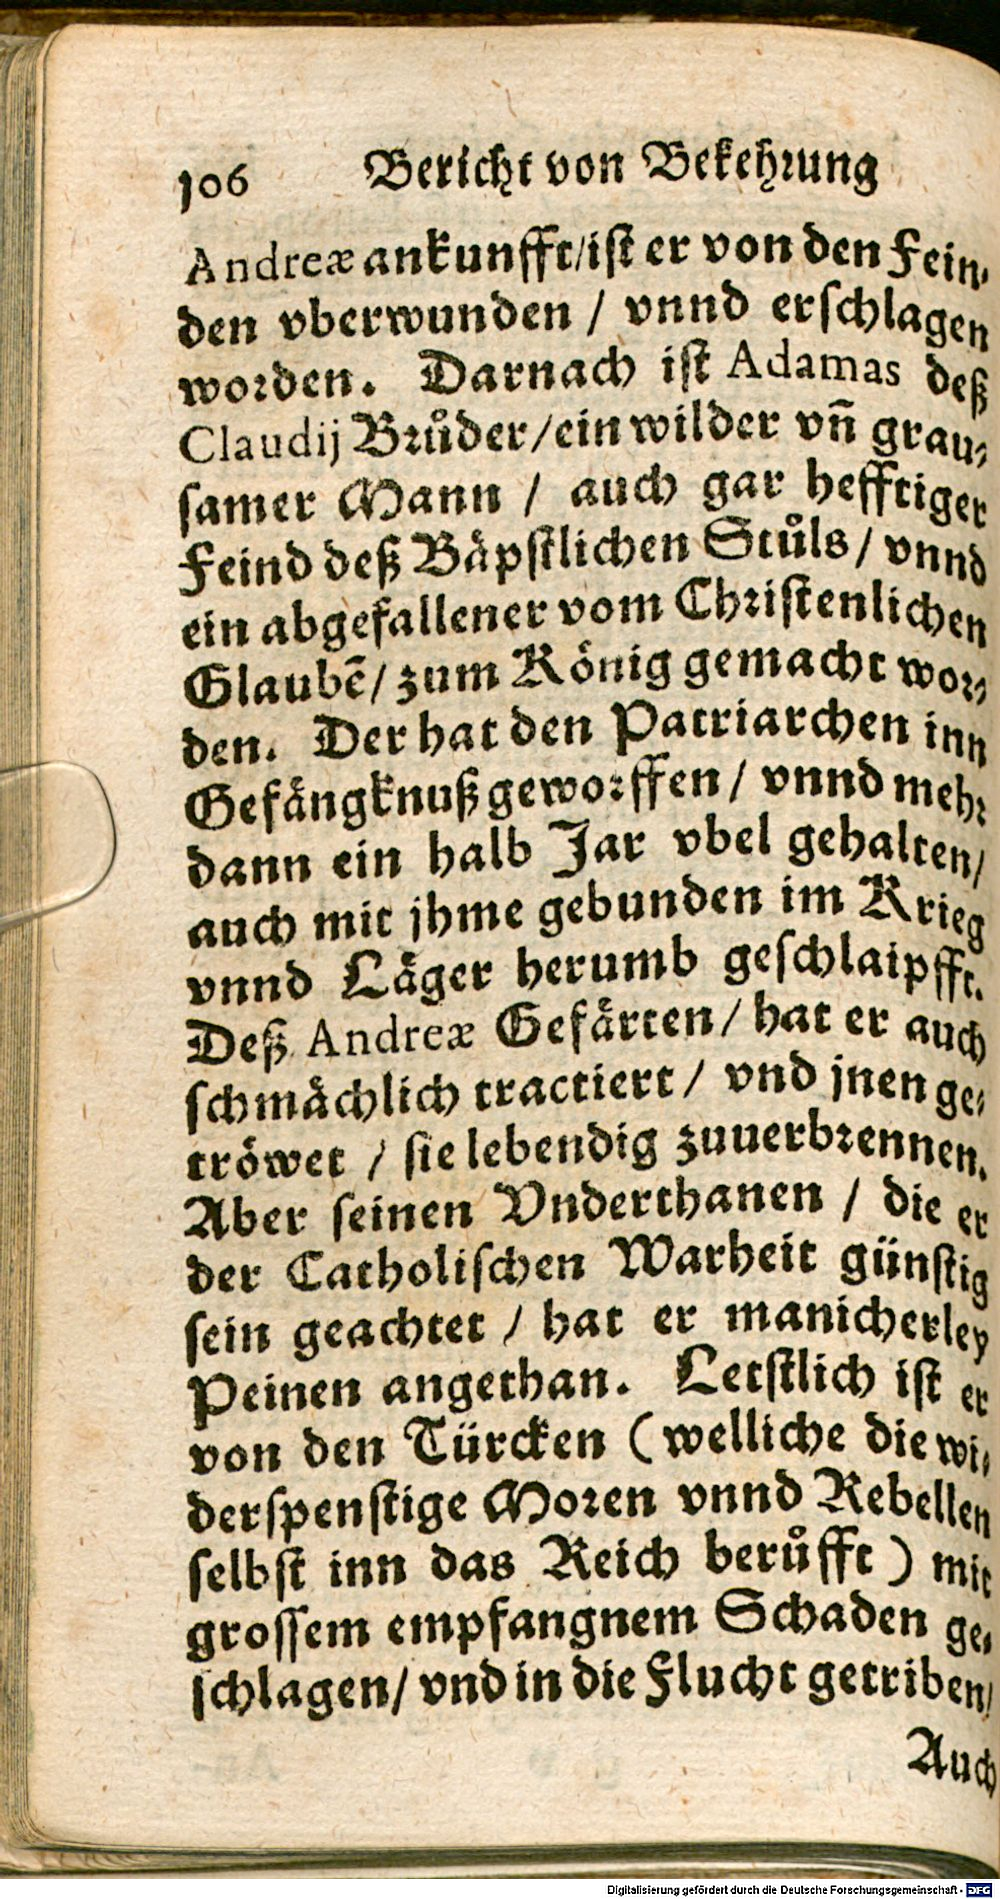 106 Bericht von Bekehrung
Andreæ ankunfft/ist er von den Fein-
den vberwunden / vnnd erſchlagen
worden. Darnach iſt Adamas deß
Claudij Brůder/ein wilder vñ grau-
ſamer Mann / auch gar hefftiger
Feind deß Bäpſtlichen Stůls/ vnnd
ein abgefallener vom Chriſtenlichen
Glaubẽ/ zum König gemacht wor-
den. Der hat den Patriarchen inn
Gefängknuß geworffen / vnnd mehr
dann ein halb Jar vbel gehalten/
auch mit jhme gebunden im Krieg
vnnd Läger herumb geſchlaipfft.
Deß Andreæ Gefärten/ hat er auch
ſchmächlich tractiert/ vnd jnen ge-
tröwet / ſie lebendig zuuerbrennen.
Aber ſeinen Vnderthanen / die er
der Catholiſchen Warheit günſtig
ſein geachtet / hat er manicherley
Peinen angethan. Letſtlich iſt er
von den Türcken (welliche die wi-
derſpenſtige Moren vnnd Rebellen
ſelbſt inn das Reich berůfft) mit
groſſem empfangnem Schaden ge-
ſchlagen/ vnd in die Flucht getriben/
Auch
Digitalisierung gefördert durch die Deutsche Forschungsgemeinschaft - DFG